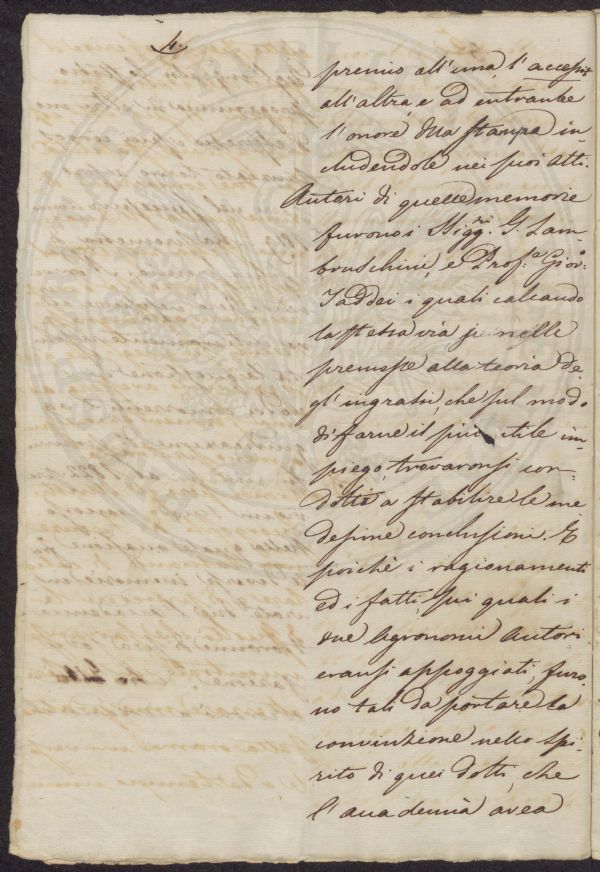 4.
premio all'una, l'accessit
all'altra, e ad entrambe
l'onore della stampa in-
cludendole nei suoi atti.
Autori di quelle memorie
furono i Sigg.ri G. Lam-
bruschini, e Prof.e Giov.
Taddei i quali calcando
la stessa via sì nelle
premesse alla teoria de-
gl'ingrassi, che sul modo
di farne il più utile im-
piego, trovaronsi con-
dotti a stabilire le me
desime conclusioni. E
poichè i ragionamenti
ed i fatti, sui quali i
due Agronomi Autori
eransi appoggiati, furo-
no tali da portare la
convinzione nello Spi-
rito di quei dotti, che
l'accademia avea